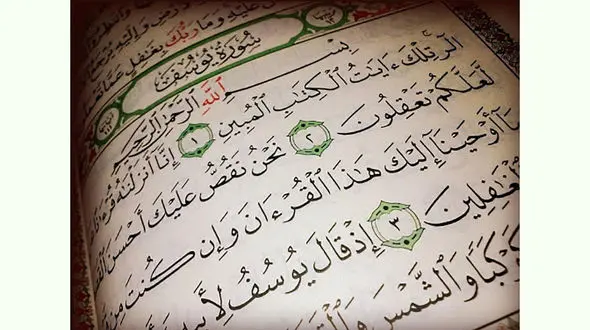 وَإِلَيْهِ يُرْجَعُ
عَلَيْهِ وَمَا رَبُّكَ بِغَٰفِلٍ عَمَّا
سُورَةُ يُوسُفَ
بِسْمِ ٱللَّهِ ٱلرَّحْمَٰنِ ٱلرَّحِيمِ
الٓر تِلْكَ ءَايَٰتُ ٱلْكِتَٰبِ ٱلْمُبِينِ ١ إِنَّآ أَنزَلْنَٰهُ
لَّعَلَّكُمْ تَعْقِلُونَ ٢ نَحْنُ نَقُصُّ عَلَيْكَ أَحْسَنَ
أَوْحَيْنَآ إِلَيْكَ هَٰذَا ٱلْقُرْءَانَ وَإِن كُنتَ مِن
ٱلْغَٰفِلِينَ ٣ إِذْ قَالَ يُوسُفُ
وَٱلشَّمْسَ